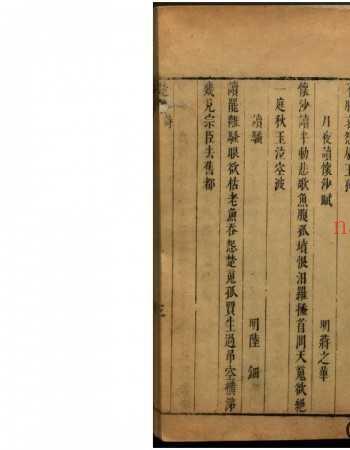 月夜讀懷沙賦
明蔣之華
懷沙讀半動悲歌魚腹孤墳恨汨羅搔首問天冤欲絕
一庭秋玉泣空波
讀騷
明陸鈿
讀罷離騷眼欲枯老魚吞怨楚冤孤賈生過弔空橫涕
幾見宗臣去舊都
三